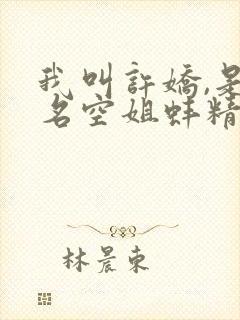 我叫許嬌,是
名空姐蚌精
林晨東